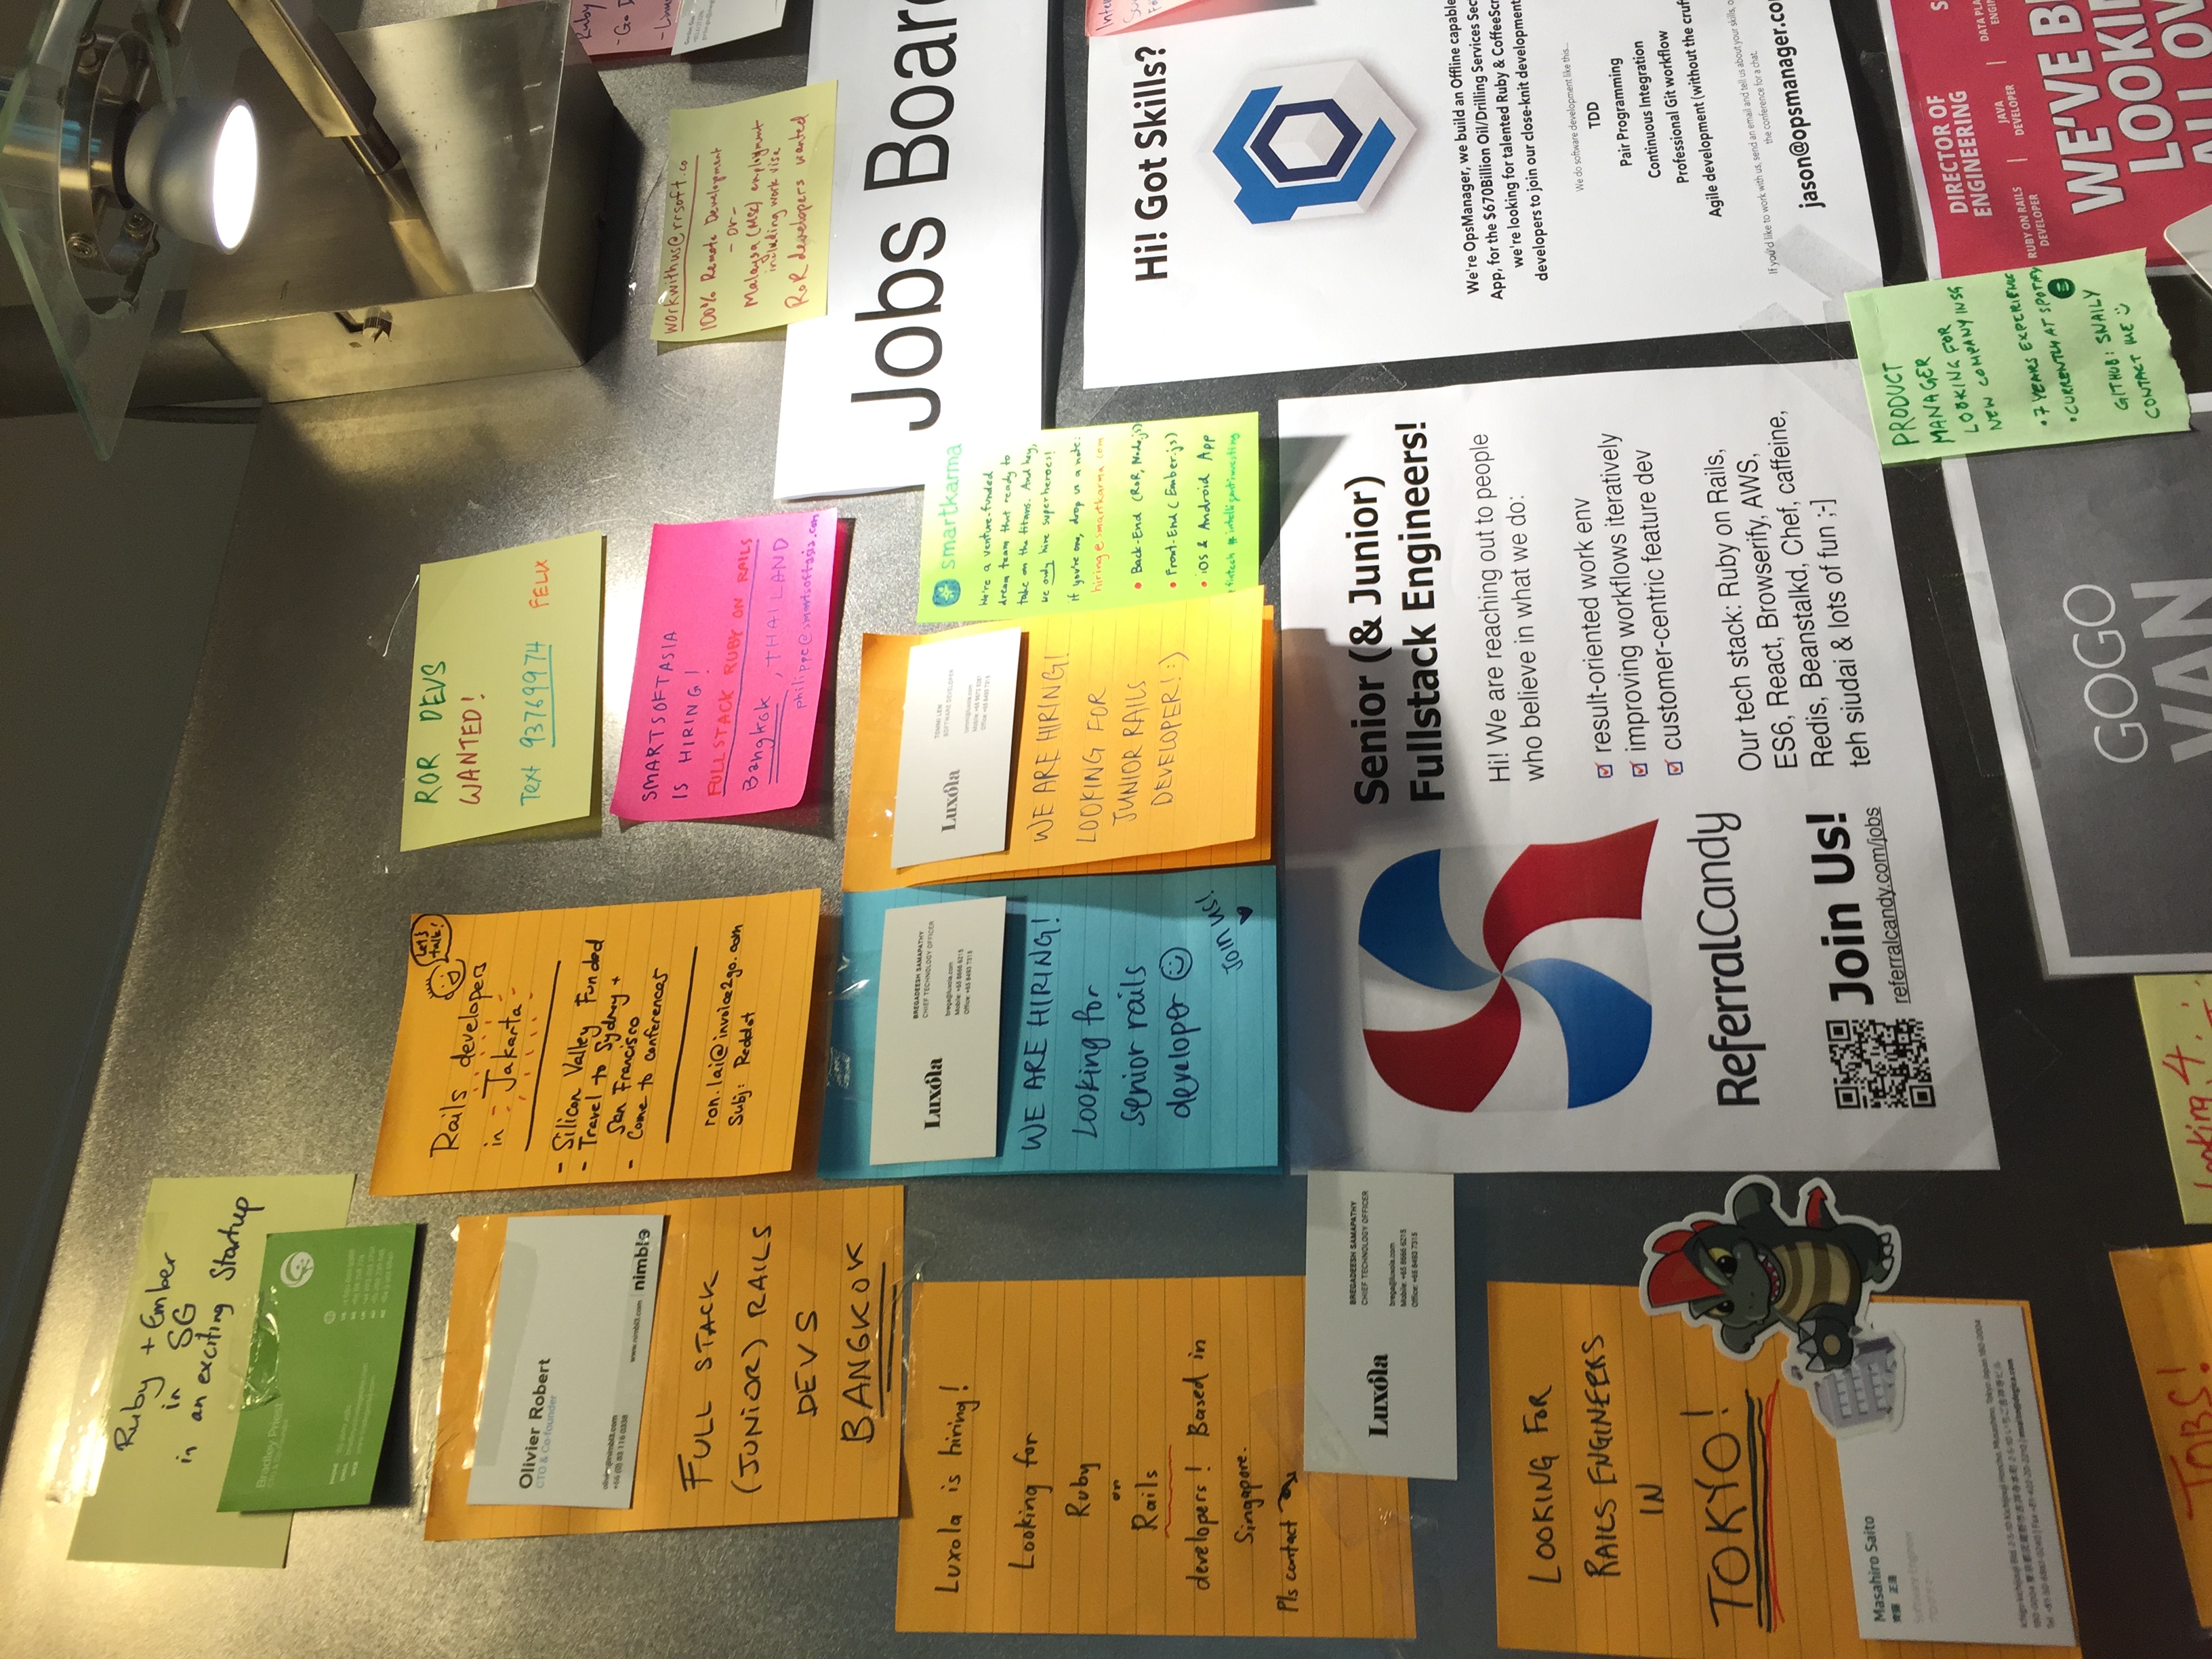 Ruby + Ember
in SG
in an exciting Startup
Bradley Priest
CTO & Co-Founder
PHONE
EMAIL
WEB
Olivier Robert
CTO & Co-founder
olivier@nimbl3.com
+66 (0) 83 116 0338
www.nimbl3.com nimbl3
FULL STACK
(JUNIOR) RAILS
DEVS
BANGKOK
Let's
talk!
Rails developers
in Jakarta
- Silicon Valley Funded
- Travel to Sydney +
San Francisco
- Come to conferences
ron.lai@invoice2go.com
Subj: Reddot
ROR DEVS
WANTED!
Text 93769974 FELIX
SMARTSOFTASIA
IS HIRING!
FULLSTACK RUBY ON RAILS
Bangkok, THAILAND
philippe@smartsoftasia.com
workwithus@rrsoft.co
100% Remote Development
- or -
Malaysa (MSC) employment
including work visa
RoR developers wanted
Ruby
- Go
- Linux
Jobs Board
Luxola is hiring!
Looking for
Ruby
or
Rails
developers! Based in
Singapore.
Pls contact
Luxola
BREGADEESH SAMAPATHY
CHIEF TECHNOLOGY OFFICER
brega@luxola.com
Mobile: +65 8666 6215
Office: +65 8493 7315
Luxola
BREGADEESH SAMAPATHY
CHIEF TECHNOLOGY OFFICER
brega@luxola.com
Mobile: +65 8666 6215
Office: +65 8493 7315
WE ARE HIRING!
Looking for
senior rails
developer
Join us!
Luxola
TOMMI LEW
SOFTWARE DEVELOPER
tommi@luxola.com
WE ARE HIRING!
LOOKING FOR
JUNIOR RAILS
DEVELOPER! :)
smartkarma
We're a venture-funded
dream team that ready to
take on the titans. And hey,
we only hire superheroes!
If you're one, drop us a note:
hiring@smartkarma.com
• Back-End (RoR, Node.js)
• Front-End (Ember.js)
• iOS & Android App
fintech #intelligentinvesting
Hi! Got Skills?
We're OpsManager, we build an Offline capable
App, for the $670Billion Oil/Drilling Services Sec
we're looking for talented Ruby & CoffeeScr
developers to join our close-knit development
We do software development like this...
TDD
Pair Programming
Continuous Integration
Professional Git workflow
Agile development (without the cruf
If you'd like to work with us, send an email and tell us about your skills, o
the conference for a chat.
jason@opsmanager.co
Senior (& Junior)
Fullstack Engineers!
Hi! We are reaching out to people
who believe in what we do:
result-oriented work env
improving workflows iteratively
customer-centric feature dev
Our tech stack: Ruby on Rails,
ES6, React, Browserify, AWS,
Redis, Beanstalkd, Chef, caffeine,
teh siudai & lots of fun ;-]
ReferralCandy
Join Us!
referralcandy.com/jobs
LOOKING FOR
RAILS ENGINEERS
IN
TOKYO!
Masahiro Saito
齊藤 正浩
Software Engineer
Ichigo Kichijouji Bld. 2-5-10 Kichijouji Honcho, Musashino, Tokyo Japan 180-0004
180-0004 東京都武蔵野市吉祥寺本町 2-5-10 いちご吉祥寺ビル
Tel +81-50-6861-0240 | Fax +81-422-20-2210 | msaito@degica.com
PRODUCT
MANAGER
LOOKING FOR
NEW COMPANY IN SG
• 7 YEARS EXPERIENCE
• CURRENTLY AT SPOTIFY
GITHUB: SNAILY
CONTACT ME
DIRECTOR OF
ENGINEERING
RUBY ON RAILS
DEVELOPER
JAVA
DEVELOPER
DATA PLA
ENGIN
WE'VE B
LOOKI
ALL OV
GOGO
VAN
JOBS!
Looking 4